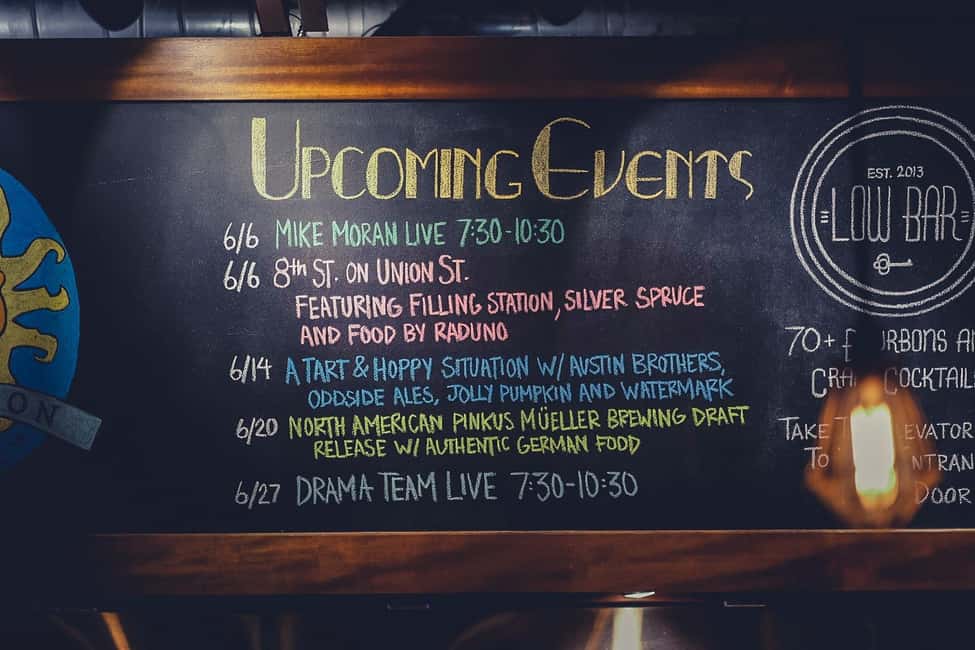 UPCOMING EVENTS
6/6 MIKE MORAN LIVE 7:30-10:30
6/6 8th ST. ON UNION ST.
FEATURING FILLING STATION, SILVER SPRUCE
AND FOOD BY RADUNO
6/14 A TART & HOPPY SITUATION W/ AUSTIN BROTHERS,
ODDSIDE ALES, JOLLY PUMPKIN AND WATERMARK
6/20 NORTH AMERICAN PINKUS MÜELLER BREWING DRAFT
RELEASE W/ AUTHENTIC GERMAN FOOD
6/27 DRAMA TEAM LIVE 7:30-10:30
EST. 2013
LOW BAR
70+
COCKTAIL
TAKE
TO
DOOR